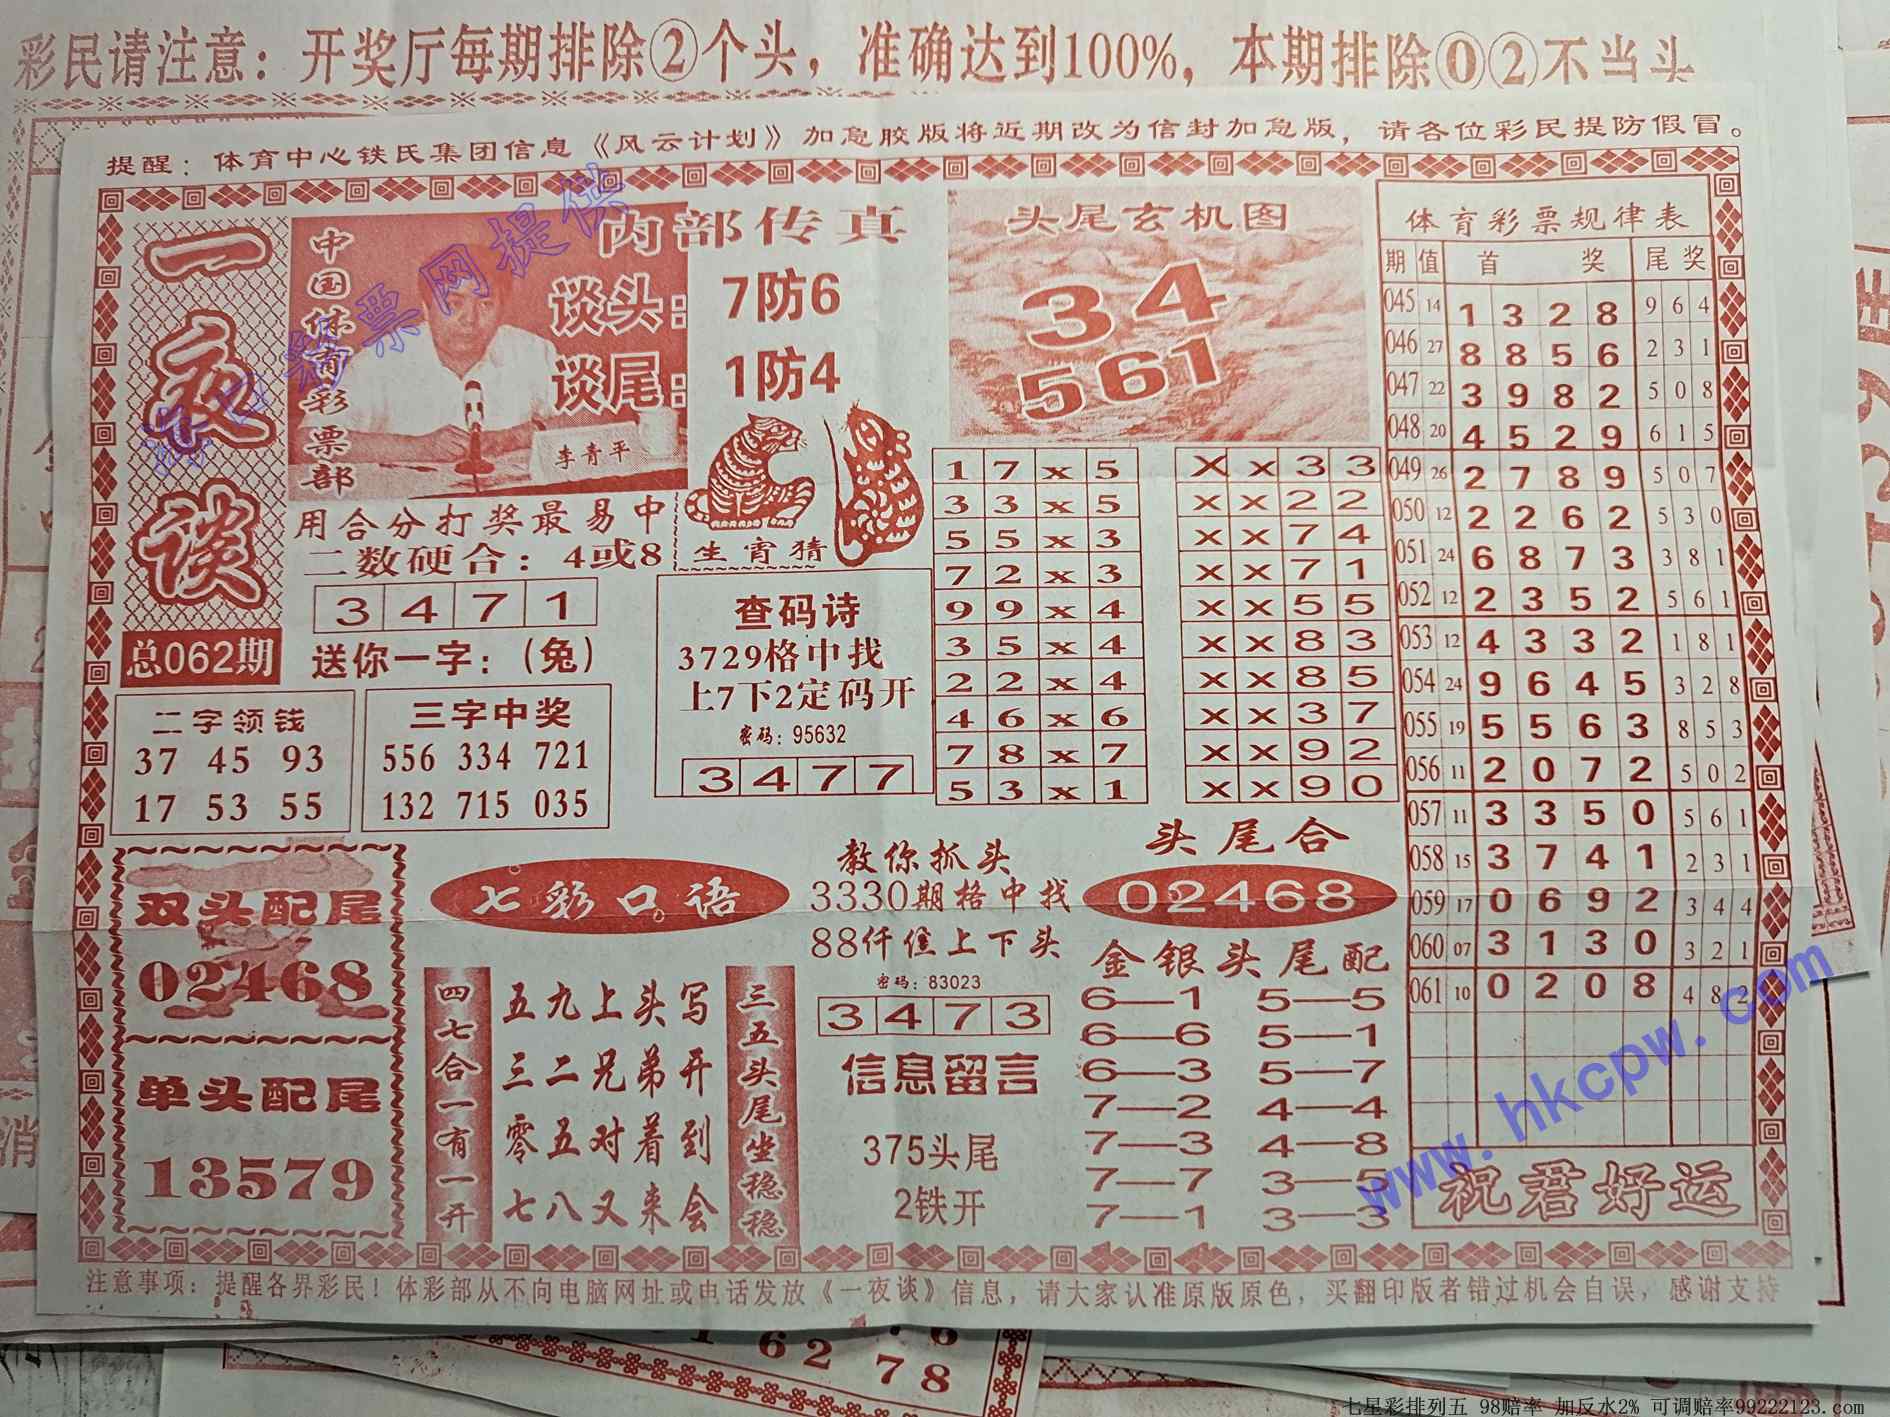 彩民请注意：开奖厅每期排除②个头，准确达到100%，本期排除⓪②不当头
提醒：体育中心铁氏集团信息《风云计划》加急胶版将近期改为信封加急版，请各位彩民提防假冒。
一夜谈
总062期
中国体育彩票部
内部传真
谈头：7防6
谈尾：1防4
李青平
用合分打奖最易中
二数硬合：4或8
3 4 7 1
送你一字：（兔）
生宵猜
头尾玄机图
34
561
二字领钱
37 45 93
17 53 55
三字中奖
556 334 721
132 715 035
查码诗
3729格中找
上7下2定码开
密码：95632
3 4 7 7
1 7 x 5
3 3 x 5
5 5 x 3
7 2 x 3
9 9 x 4
3 5 x 4
2 2 x 4
4 6 x 6
7 8 x 7
5 3 x 1
X x 3 3
x x 2 2
x x 7 4
x x 7 1
x x 5 5
x x 8 3
x x 8 5
x x 3 7
x x 9 2
x x 9 0
体育彩票规律表
期 值 首奖 尾奖
045 14 1 3 2 8 9 6 4
046 27 8 8 5 6 2 3 1
047 22 3 9 8 2 5 0 8
048 20 4 5 2 9 6 1 5
049 26 2 7 8 9 5 0 7
050 12 2 2 6 2 5 3 0
051 24 6 8 7 3 3 8 1
052 12 2 3 5 2 5 6 1
053 12 4 3 3 2 1 8 1
054 24 9 6 4 5 3 2 8
055 19 5 5 6 3 8 5 3
056 11 2 0 7 2 5 0 2
057 11 3 3 5 0 5 6 1
058 15 3 7 4 1 2 3 1
059 17 0 6 9 2 3 4 4
060 07 3 1 3 0 3 2 1
061 10 0 2 0 8 4 8 2
祝君好运
双头配尾
02468
单头配尾
13579
七彩口语
四七合一有一开
五九上头写
三二兄弟开
零五对着到
七八又来会
三五头尾坐稳稳
教你抓头
3330期格中找
88仟隹上下头
密码：83023
3 4 7 3
信息留言
375头尾
2铁开
头尾合
02468
金银头尾配
6—1 5—5
6—6 5—1
6—3 5—7
7—2 4—4
7—3 4—8
7—7 3—5
7—1 3—3
注意事项：提醒各界彩民！体彩部从不向电脑网址或电话发放《一夜谈》信息，请大家认准原版原色，买翻印版者错过机会自误，感谢支持
www.hkcpw.com
62 78
七星彩排列五 98赔率 加反水2% 可调赔率99222123.com